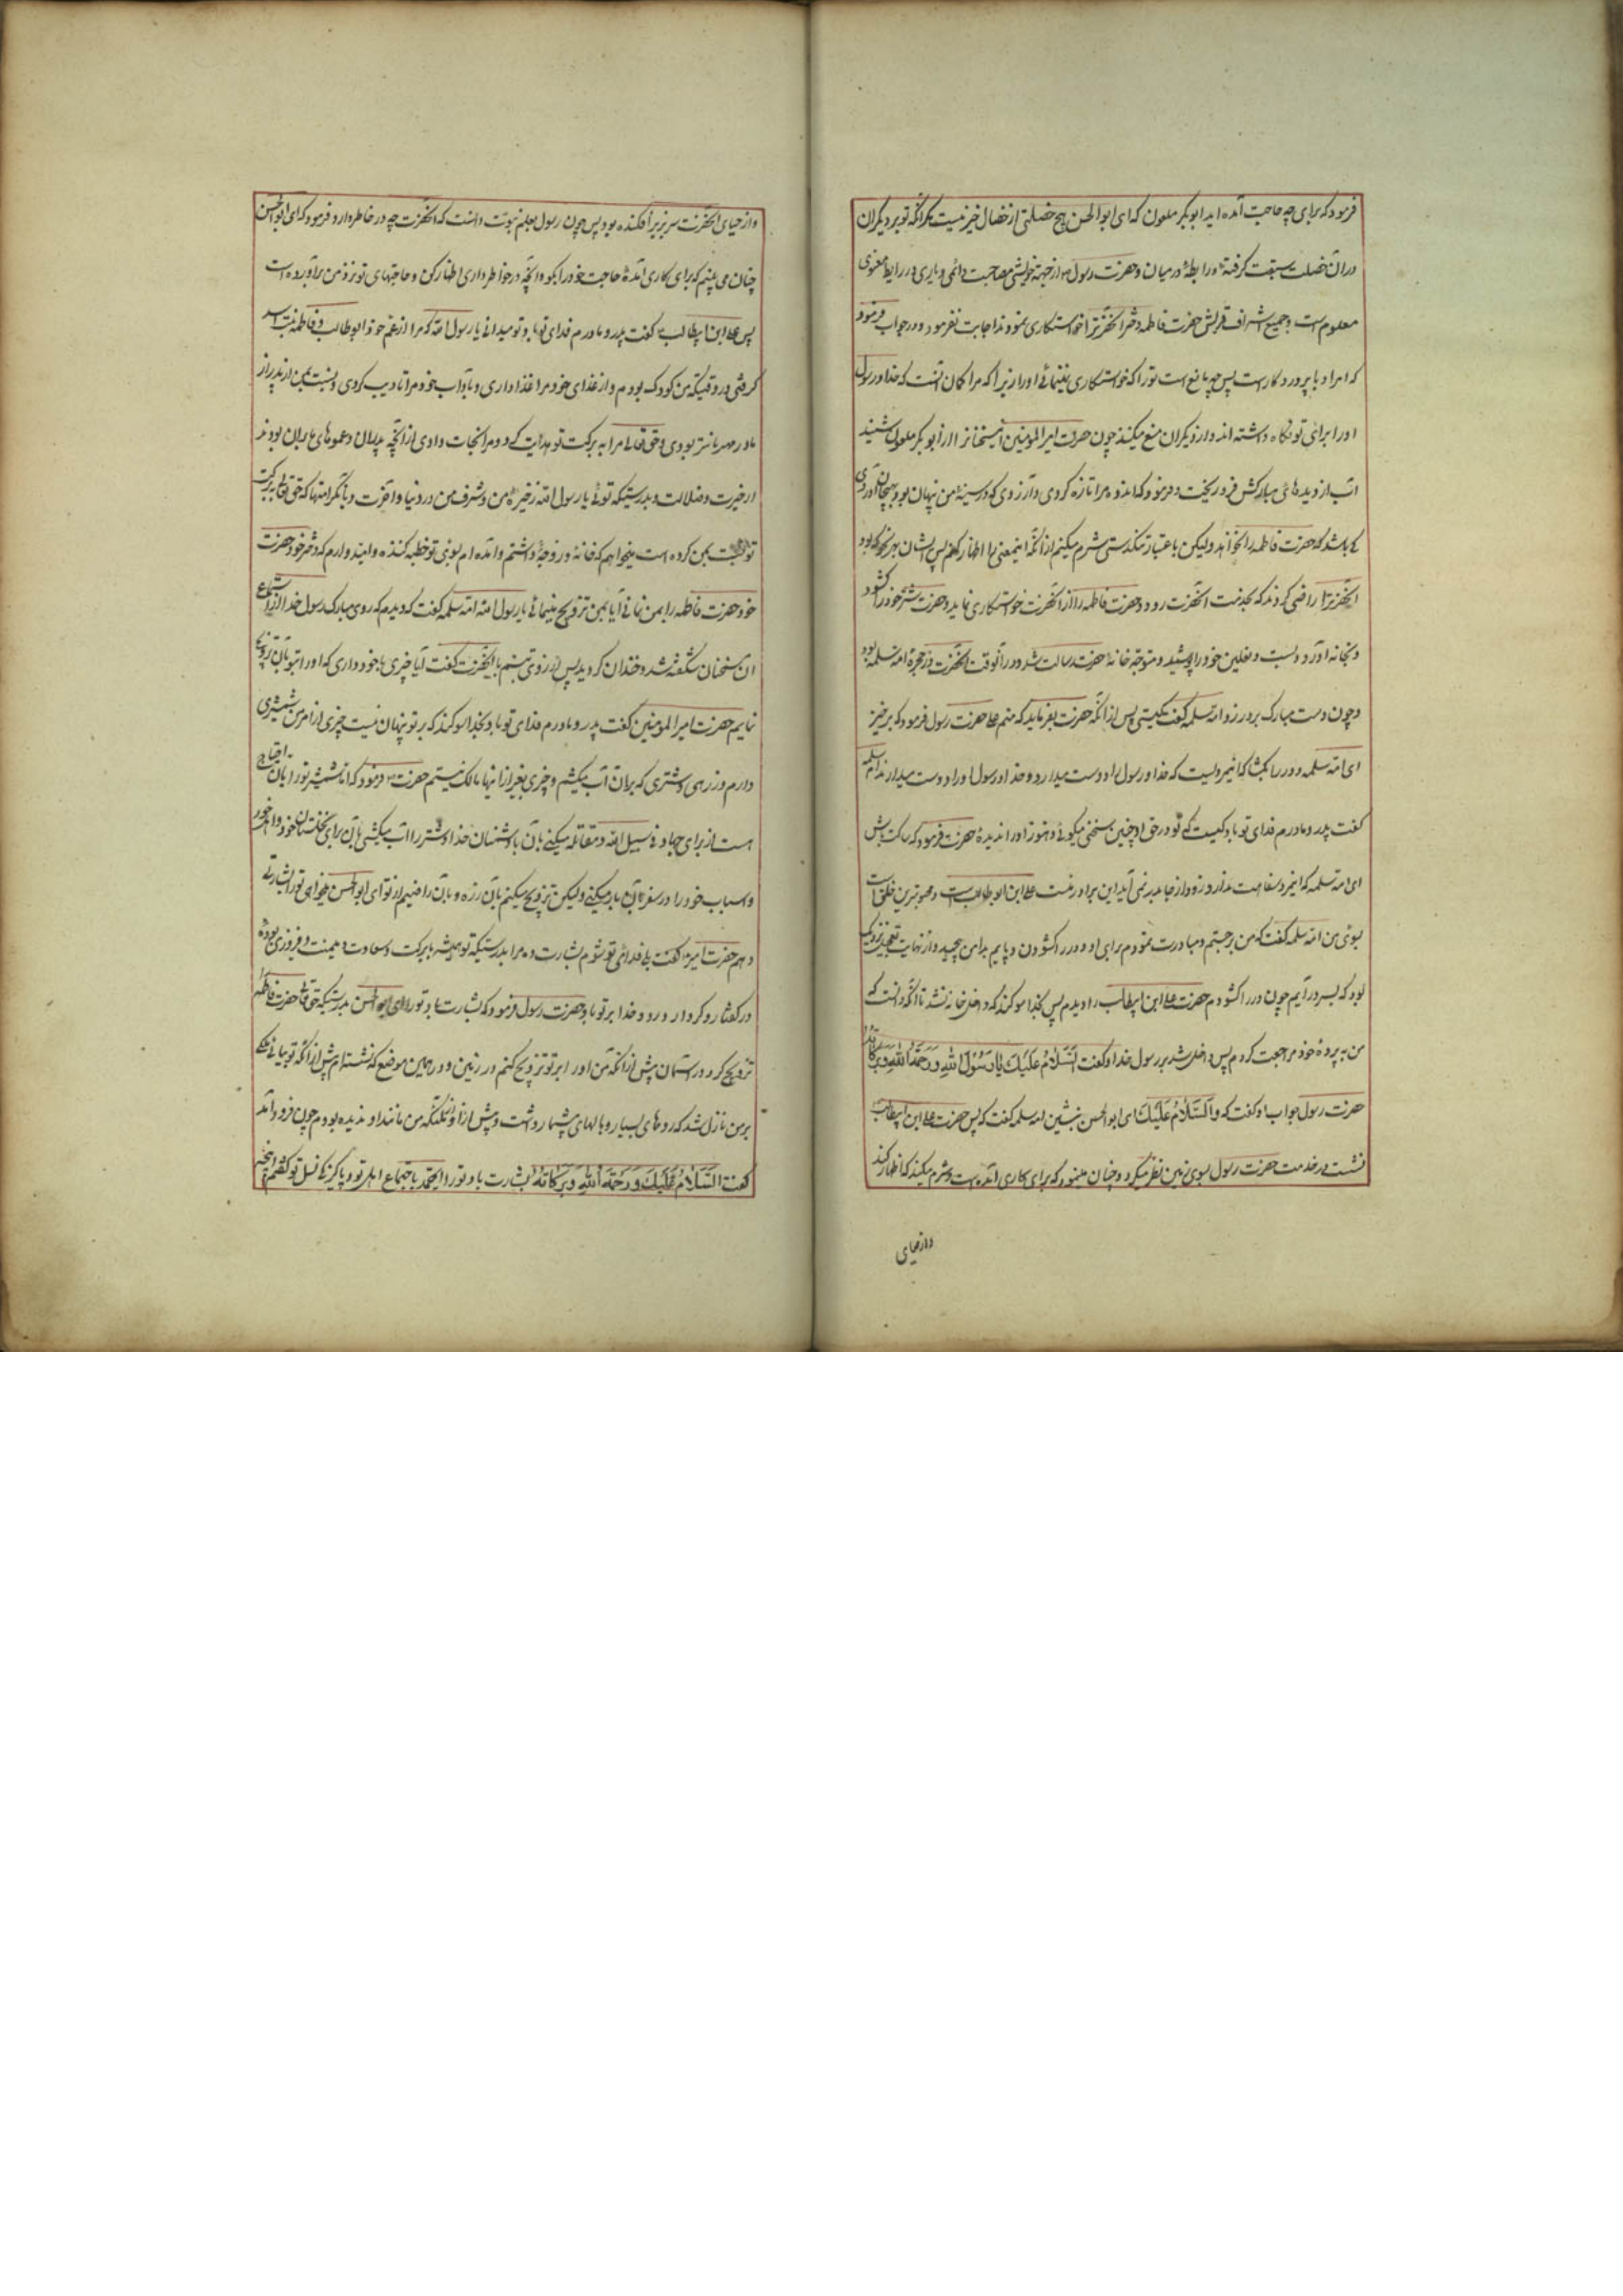 فرمود که برای چه حاجت آمده اید ابو بکر ملعون که ای ابو الحسن هیچ خصلتی از خصال خیر نیست مگر آنکه تو بر دیگران
در آن خصلت سبقت گرفتهٔ و رابطهٔ در میان و حضرت رسول از جهة خویشی و مصاحبت دائمی و یاری و در رابط معنوی
معلوم است و جمیع اشراف قریش حضرت فاطمه دختر آنحضرترا خواستکاری نمودند اجابت نفرمود و در جواب فرمود
که امر او با پروردکار است پس چه مانع است تو را که خواستکاری نمینمائی او را زیرا که مرا کمان آنست که خدا و رسول
او را برای تو نکاه داشته اند و از دیکران منع میکنند چون حضرت امیر المؤمنین اینسخنانرا از ابو بکر ملعون شنید
آب از دیده های مبارکش فرو ریخت و فرمود که اندوه مرا تازه کردی و آرزوی که در سینهٔ من پنهان بود بهیجان آوردی
که باشد که حضرت فاطمه را نخواهد ولیکن باعتبار تنکدستی شرم میکنم از آنکه اینمعنی را اظهار کنم پس ایشان بهر نحو که بود
آنحضرترا راضی کردند که بخدمت آنحضرت رود و حضرت فاطمه را از آنحضرت خواستکاری نماید و حضرت شتر خود را کشود
و بخانه آورد و بست و نعلین خود را پوشید و متوجّه خانهٔ حضرت رسالت شد و در آنوقت آنحضرت در حجرهٔ امّ سلمه بود
و چون دست مبارک بر در زد امّ سلمه کفت کیستی پس از آنکه حضرت بفرماید که منم علی حضرت رسول فرمود که برخیز
ای امّ سلمه و در را بکشا که این مردیست که خدا و رسول او را دوست میدارد و خدا و رسول را او دوست میدارند امّ سلمه
کفت پدر و مادرم فدای تو باد کیست که تو در حق او چنین سخنی میکوئی و هنوز او را ندیدهٔ حضرت فرمود که ساکت باش
ای امّ سلمه که این مرد سفاهت ندارد و زود از جا بدر نمی آید این برادر منست علی ابن ابو طالب است و محبوبترین خلق است
بسوی من امّ سلمه کفت که من برجستم و مبادرت نمودم برای او و در را کشودن و پایم بدامن پیچید و از نهایت تعجیل نزدیک
بود که بسر در آیم چون در را کشودم حضرت علی ابن ابیطالب را دیدم پس بخدا سوکند که داخل خانه نشد تا آنکه دانست که
من به پردهٔ خود مراجعت کردم پس داخل شد بر رسول خدا و کفت اَلسَّلامُ عَلَیْكَ یا رَسُولَ اللهِ وَ رَحْمَةُ اللهِ وَ بَرَکاتُهُ
حضرت رسول جواب او کفت که وَ اَلسَّلامُ عَلَیْكَ ای ابو الحسن بنشین امّ سلمه کفت که پس حضرت علی ابن ابیطالب
نشست در خدمت حضرت رسول بسوی زمین نظر میکرد و چنان مینمود که برای کاری آمده است و شرم میکند که اظهار کند
و از حیای
و از حیای آنحضرت سر بزیر افکنده بود پس چون رسول بعلم نبوّت دانست که آنحضرت چه در خاطر دارد فرمود که ای ابو الحسن
چنان می بینم که برای کاری آمدهٔ حاجت خود را بکو و آنچه در خواطر داری اظهار کن و حاجتهای تو نزد من برآورده است
پس علی ابن ابیطالب کفت پدر و مادرم فدای تو باد تو میدانی یا رسول الله که مرا از عم خود ابو طالب و فاطمه بنت اسد
کرفتی در وقتیکه من کودک بودم و از غذای خود مرا غذا دادی و بآداب خود مرا تأدیب کردی و نسبت بمن از پدر از
مادر مهربانتر بودی و حق تعالی مرا به برکت تو هدایت کرد و مرا نجات دادی از آنچه پدران و عموهای من بران بودند
از حیرت و ضلالت و بدرستیکه توئی یا رسول الله ذخیرهٔ من و شرف من در دنیا و آخرت و با آن کرامتها که حق تعالی به برکت
تو نسبت بمن کرده است میخواهم که خانه و زوجهٔ داشتم و آمده ام بسوی تو خطبه کننده و امیدوارم که دختر خود حضرت
خود حضرت فاطمه را بمن نمائی آیا بمن تزویج مینمائی یا رسول الله امّ سلمه کفت که دیدم که روی مبارک رسول خدا از استماع
آن سخنان شکفته شد و خندان کردید پس از روی تبسّم بآنحضرت کفت آیا چیزی با خود داری که او را بتو بآن تزویج
نمایم حضرت امیر المؤمنین کفت پدر و مادرم فدای تو باد بخدا سوکند که بر تو پنهان نیست چیزی از امر من شمشیری
دارم و زرهی و شتری که بران آب میکشم و چیزی بغیر از اینها مالک نیستم حضرت فرمود که اما شمشیر تو را بآن احتیاج
هست از برای جهاد فی سبیل الله و مقاتله میکنی بآن با دشمنان خدا و شتر را آب میکشی بآن برای نخلستان خود و اهل خود
و اسباب خود را در سفر بآن بار میکنی ولیکن تزویج میکنم بآن زره و بآن راضیم از تو ای ابو الحسن میخواهی تو را بشارتی
دهم حضرت امیر کفت بلی فدای تو شوم بشارت ده مرا بدرستیکه تو همیشه با برکت و سعادت و میمنت و فیروزی بودهٔ
در کفتار و کردار درود خدا بر تو باد حضرت رسول فرمود که بشارت باد تو را ای ابو الحسن بدرستیکه حق تعالی حضرت فاطمه
تزویج کرد در آسمان پیش از آنکه من او را بر تو تزویج کنم در زمین و در همین موضع که نشسته ام پیش از آنکه تو بیائی ملکی
بر من نازل شد که روهای بسیار و بالهای بیشمار داشت و پیش از او ملکی من مانند او ندیده بودم چون فرود آمد
کفت السَّلامُ عَلَیْكَ وَ رَحْمَةُ اللهِ وَ بَرَکاتُهُ بشارت باد تو را ای محمّد باجتماع اهل تو و پاکیزکی نسل تو کفتم